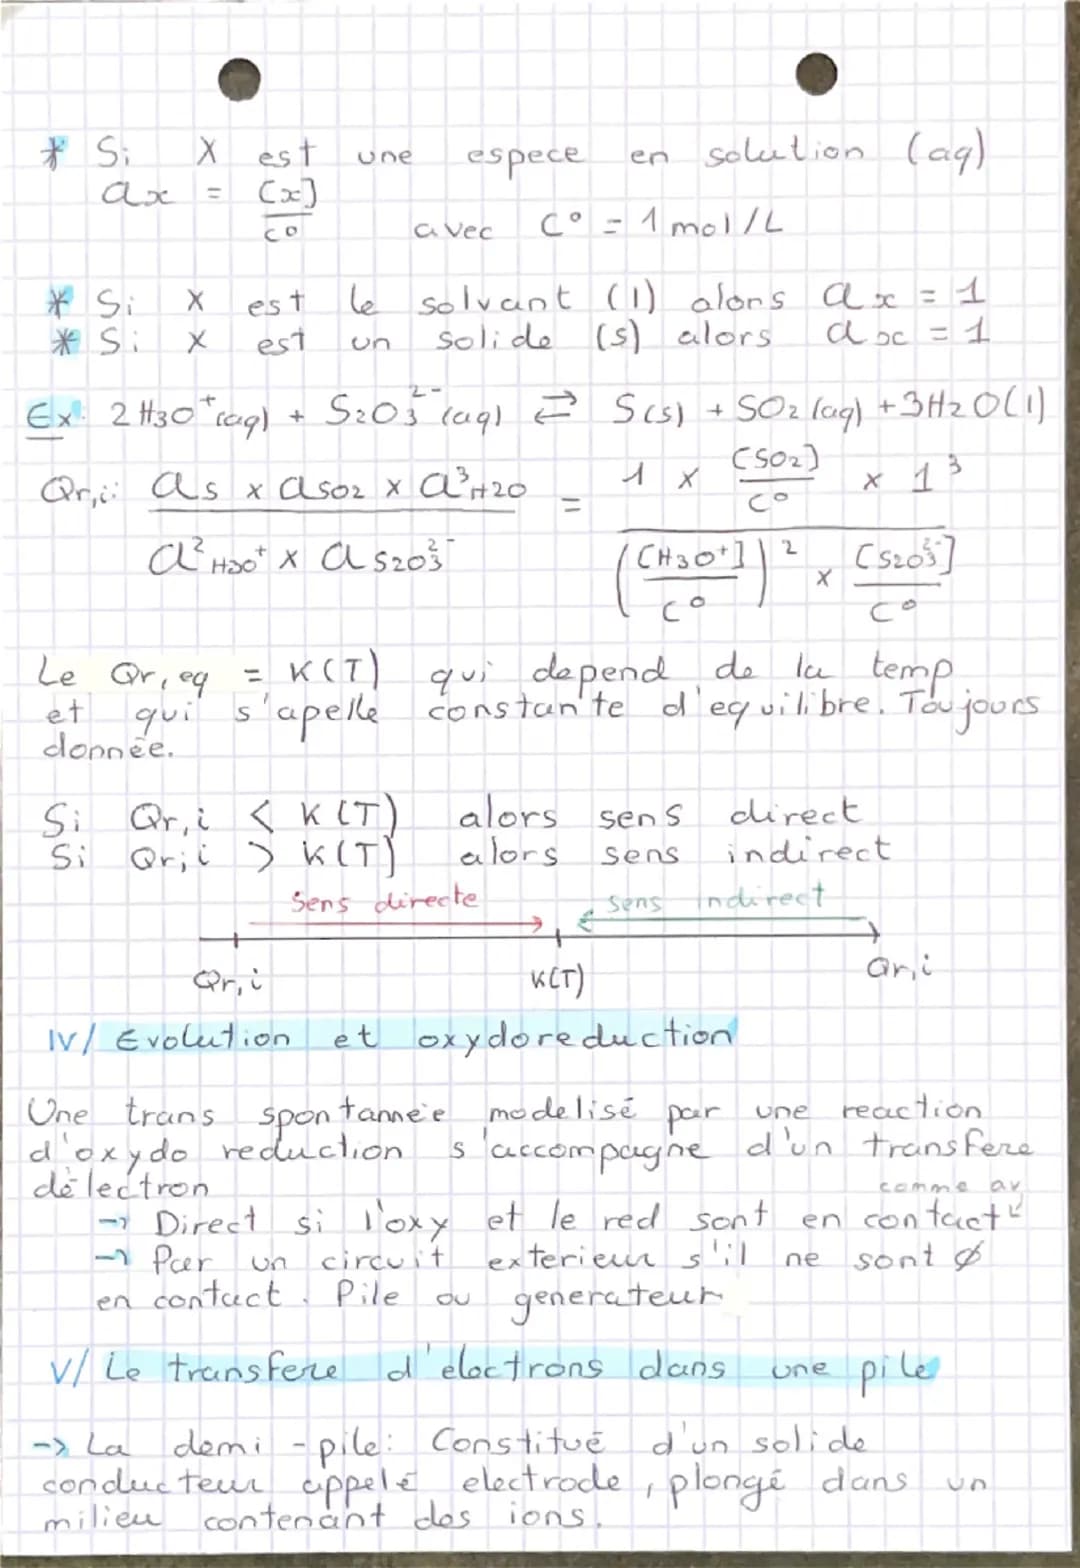 * Si X est une espece en solution (aq)
ax = [x]/C° avec C° = 1 mol/L
* Si X est le solvant (l) alons ax = 1
* Si X est un solide (s) alors ax = 1
Ex: 2 H3O⁺(aq) + S2O3²⁻(aq) ⇄ S(s) + SO2(aq) + 3H2O(l)
Qr,i: (as x aso2 x a³H2O) / (a²H3O⁺ x a s2O3²⁻) = (1 x [SO2]/C° x 1³) / (([H3O⁺]/C°)² x [S2O3²⁻]/C°)
Le Qr,eq = K(T) qui depend de la temp
et qui s'apelle constante d'equilibre. Toujours
donnée.
Si Qr,i < K(T) alors sens direct
Si Qr,i > K(T) alors sens indirect
Sens directe sens indirect
Qr,i K(T) Qr,i
IV/ Evolution et oxydoreduction
Une trans spontannée modelisé par une reaction
d'oxydo reduction s'accompagne d'un transfere
d'électron
comme av
→ Direct si l'oxy et le red sont en contact
→ Par un circuit exterieur s'il ne sont ∅
en contact. Pile ou generateur
V/ Le transfere d'electrons dans une pile
-> La demi-pile: Constitué d'un solide
conducteur appelé electrode, plongé dans un
milieu contenant des ions.